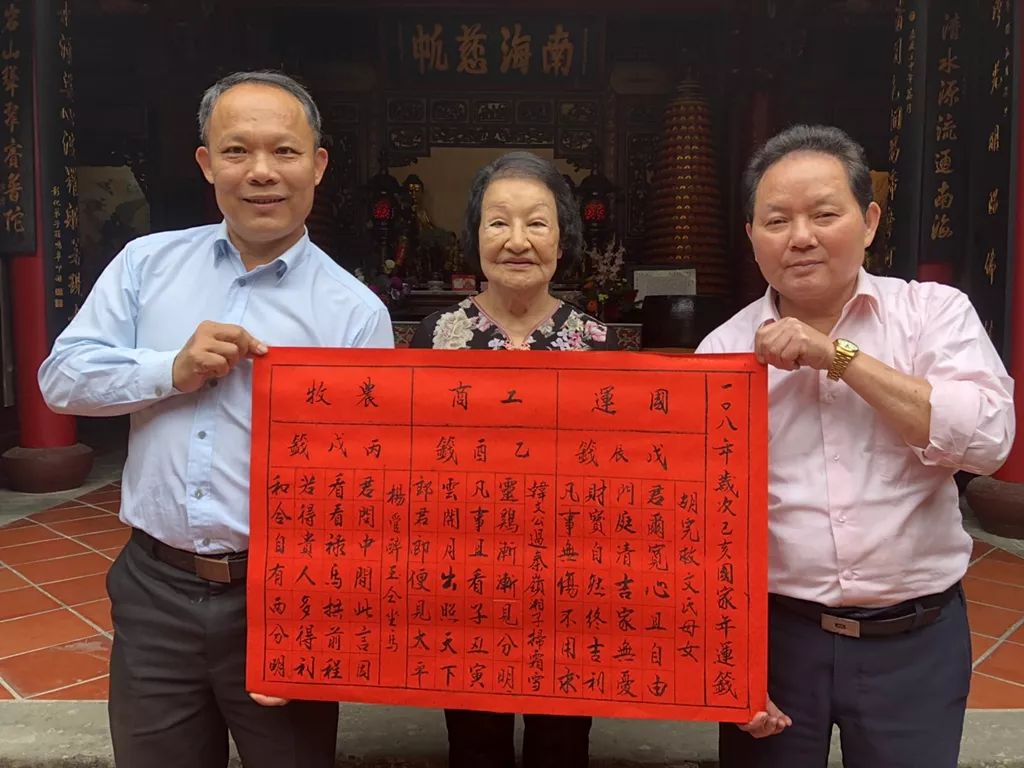 南海慈帆
清水源流通南海
翠賽普陀
一〇八年歲次己亥國家年運籤
國運
戊辰籤
胡完救文氏母女
君爾寬心且自由
門庭清吉家無憂
財寶自然終吉利
凡事無傷不用求
工商
乙酉籤
韓文公過秦嶺湘子掃霜雪
靈鷄漸漸見分明
凡事且看子丑寅
雲開月出照天下
郎君即便見太平
農牧
丙戌籤
楊管醉玉仝坐馬
君問中間此言因
看看祿馬拱前程
若得貴人多得利
和合自有兩分明